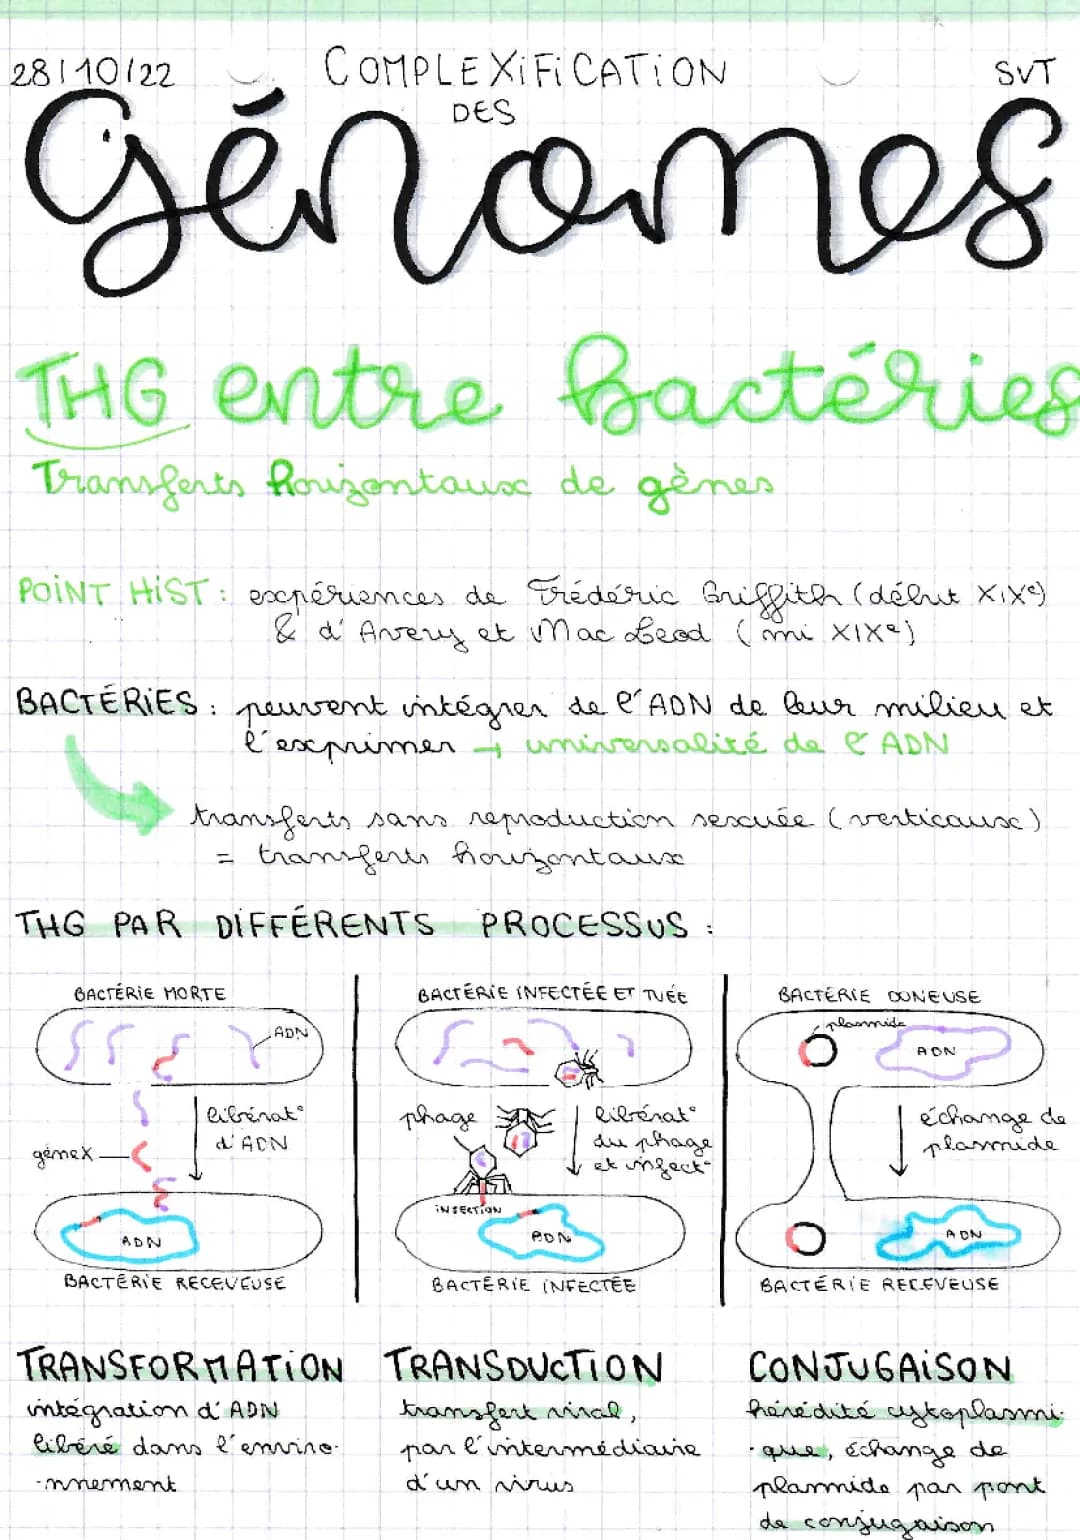 28/10/22 COMPLEXIFICATION SVT
DES
Génomes
THG entre Bactéries
Transferts horizontaux de gènes
POINT HIST : expériences de Frédéric Griffith (début XIXe)
& d'Avery et Mac Leod (mi XIXe)
BACTÉRIES : peuvent intégrer de l'ADN de leur milieu et
l'exprimer → universalité de l'ADN
transferts sans reproduction sexuée (verticaux)
= transferts horizontaux
THG PAR DIFFÉRENTS PROCESSUS :
BACTÉRIE MORTE
ADN
libérat°
d'ADN
gène X
ADN
BACTÉRIE RECEVEUSE
BACTÉRIE INFECTÉE ET TUÉE
phage
libérat°
du phage
et infect°
INSECTION
ADN
BACTÉRIE INFECTÉE
BACTÉRIE DONEUSE
plasmide
ADN
échange de
plasmide
ADN
BACTÉRIE RECEVEUSE
TRANSFORMATION
intégration d'ADN
libéré dans l'enviro-
-nnement
TRANSDUCTION
transfert viral,
par l'intermédiaire
d'un virus
CONJUGAISON
hérédité cytoplasmi-
-que, échange de
plasmide par pont
de conjugaison